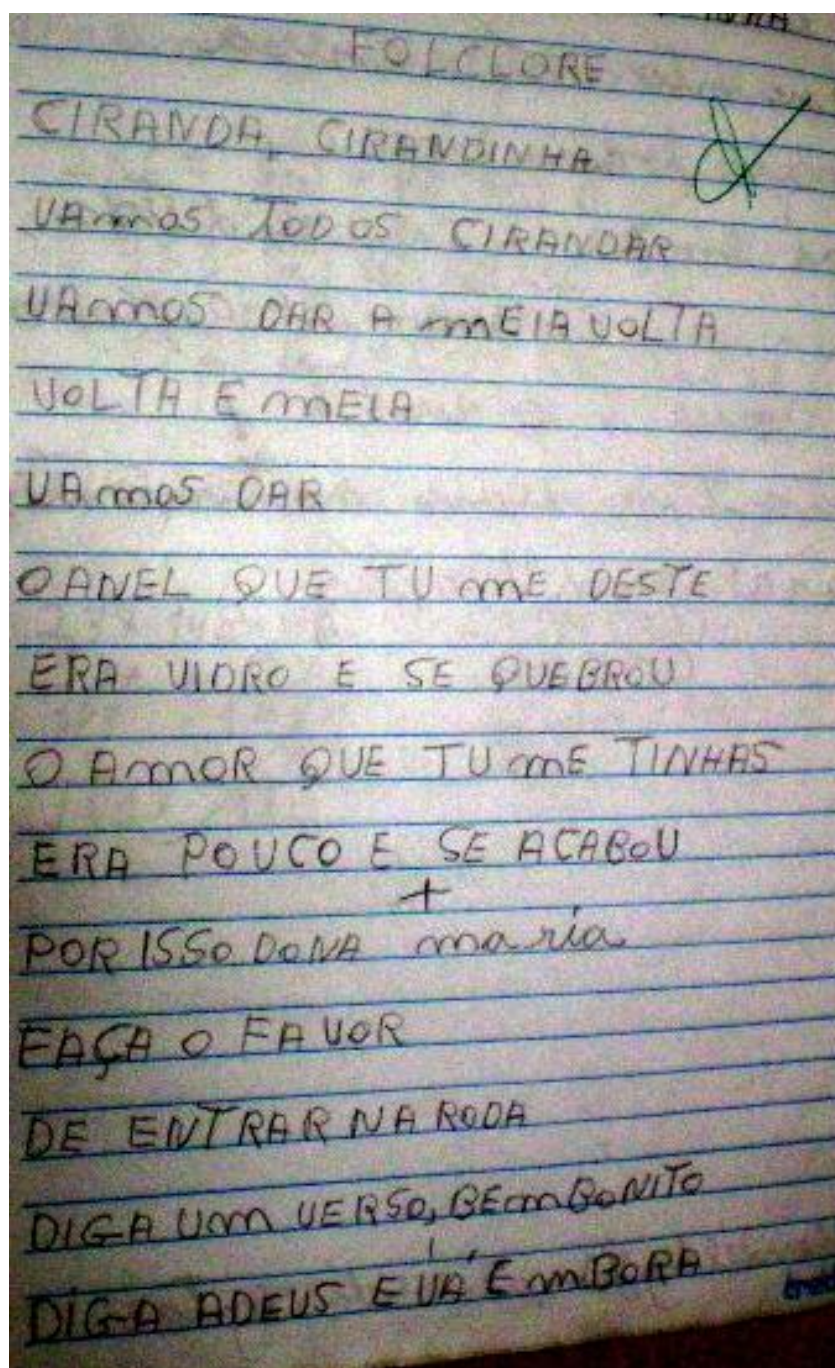 FOLCLORE
CIRANDA, CIRANDINHA
VAmos TODOS CIRANDAR
VAmos DAR A mEIA VOLTA
VOLTA E mEIA
VAmos DAR
O ANEL QUE TU mE DESTE
ERA VIDRO E SE QUEBROU
O AmOR QUE TU mE TINHAS
ERA POUCO E SE ACABOU
+
POR ISSO DONA maria
FAÇA O FAVOR
DE ENTRAR NA RODA
DIGA Um VERSO, BEm BONITO
DIGA ADEUS E VÁ EmBORA